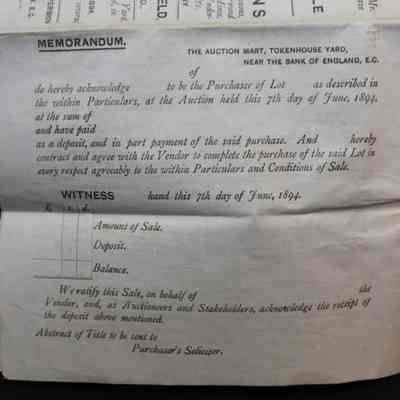 MEMORANDUM.
THE AUCTION MART, TOKENHOUSE YARD,
NEAR THE BANK OF ENGLAND, E.C.
of
do hereby acknowledge to be the Purchaser of Lot as described in
the within Particulars, at the Auction held this 7th day of June, 1894,
at the sum of
and have paid
as a deposit, and in part payment of the said purchase. And hereby
contract and agree with the Vendor to complete the purchase of the said Lot in
every respect agreeably to the within Particulars and Conditions of Sale.
WITNESS hand this 7th day of June, 1894.
£ s. d.
Amount of Sale.
Deposit.
Balance.
We ratify this Sale, on behalf of the
Vendor, and, as Auctioneers and Stakeholders, acknowledge the receipt of
the deposit above mentioned.
Abstract of Title to be sent to
Purchaser's Solicitor.